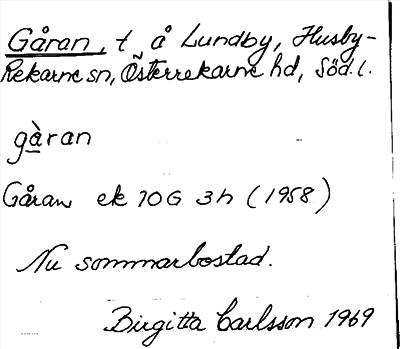 Gåran, t å Lundby, Husby-
Rekarne sn, Österrekarne hd, Söd. l.
gàran
Gåran ek 10G 3h (1958)
Nu sommarbostad.
Birgitta Carlsson 1969